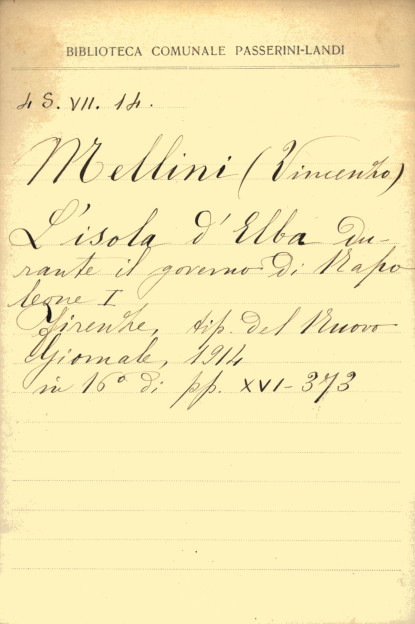 BIBLIOTECA COMUNALE PASSERINI-LANDI
4 S. VII. 14.
Mellini (Vincenzo)
L'isola d'Elba du-
rante il governo di Napo
leone I
Firenze, tip. del Nuovo
Giornale, 1914
in 16° di pp. XVI-373